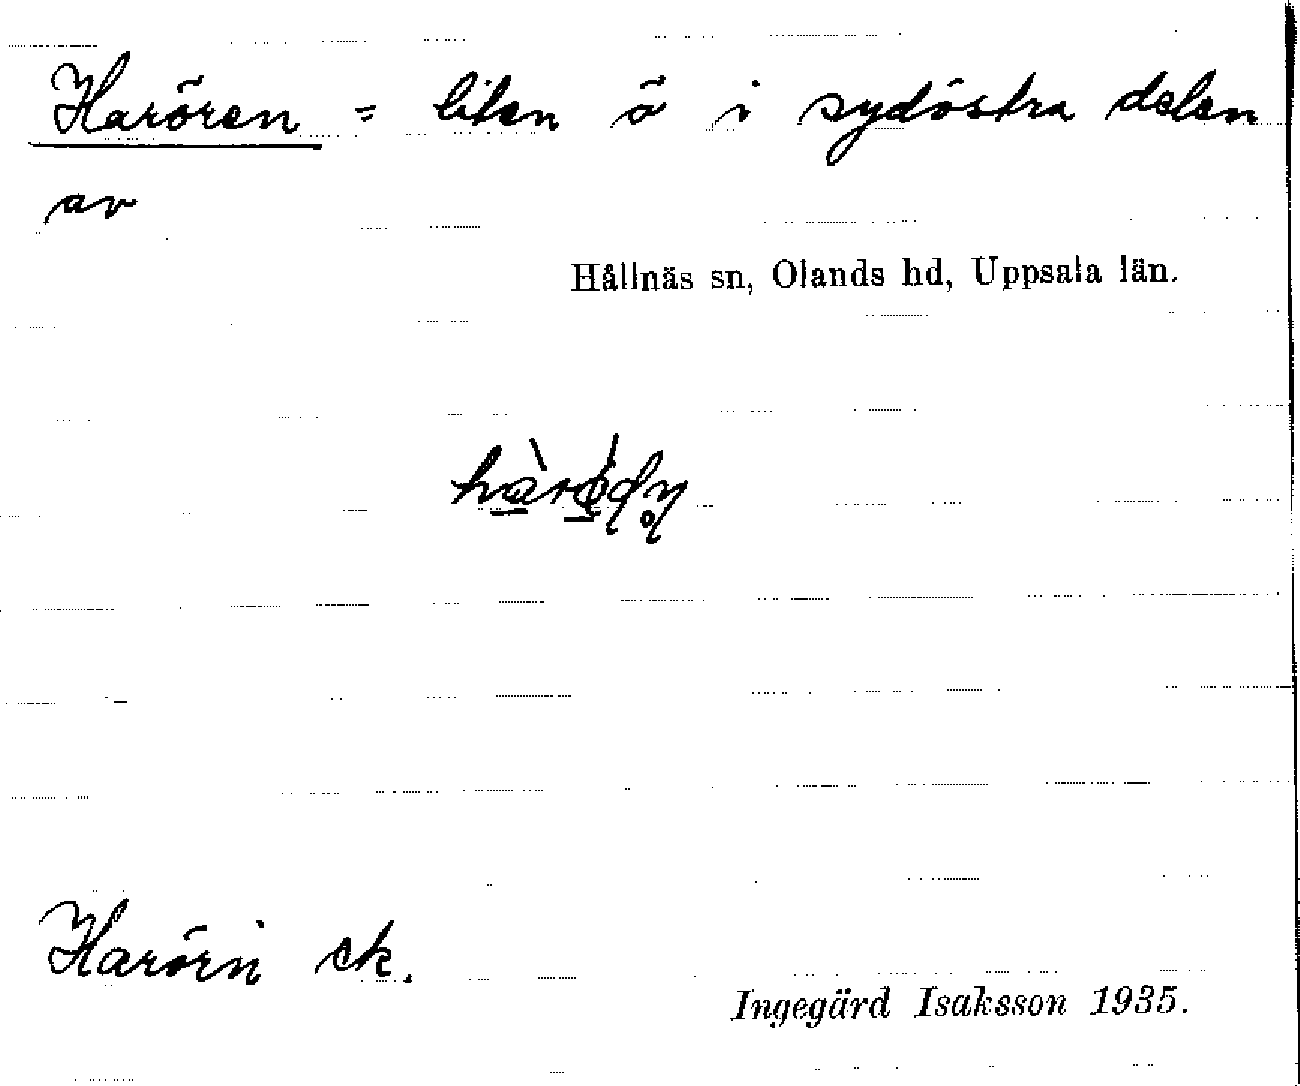 Harören = liten ö i sydöstra delen
av
Hållnäs sn, Olands hd, Uppsala län.
Harörn ek.
Ingegärd Isaksson 1935.